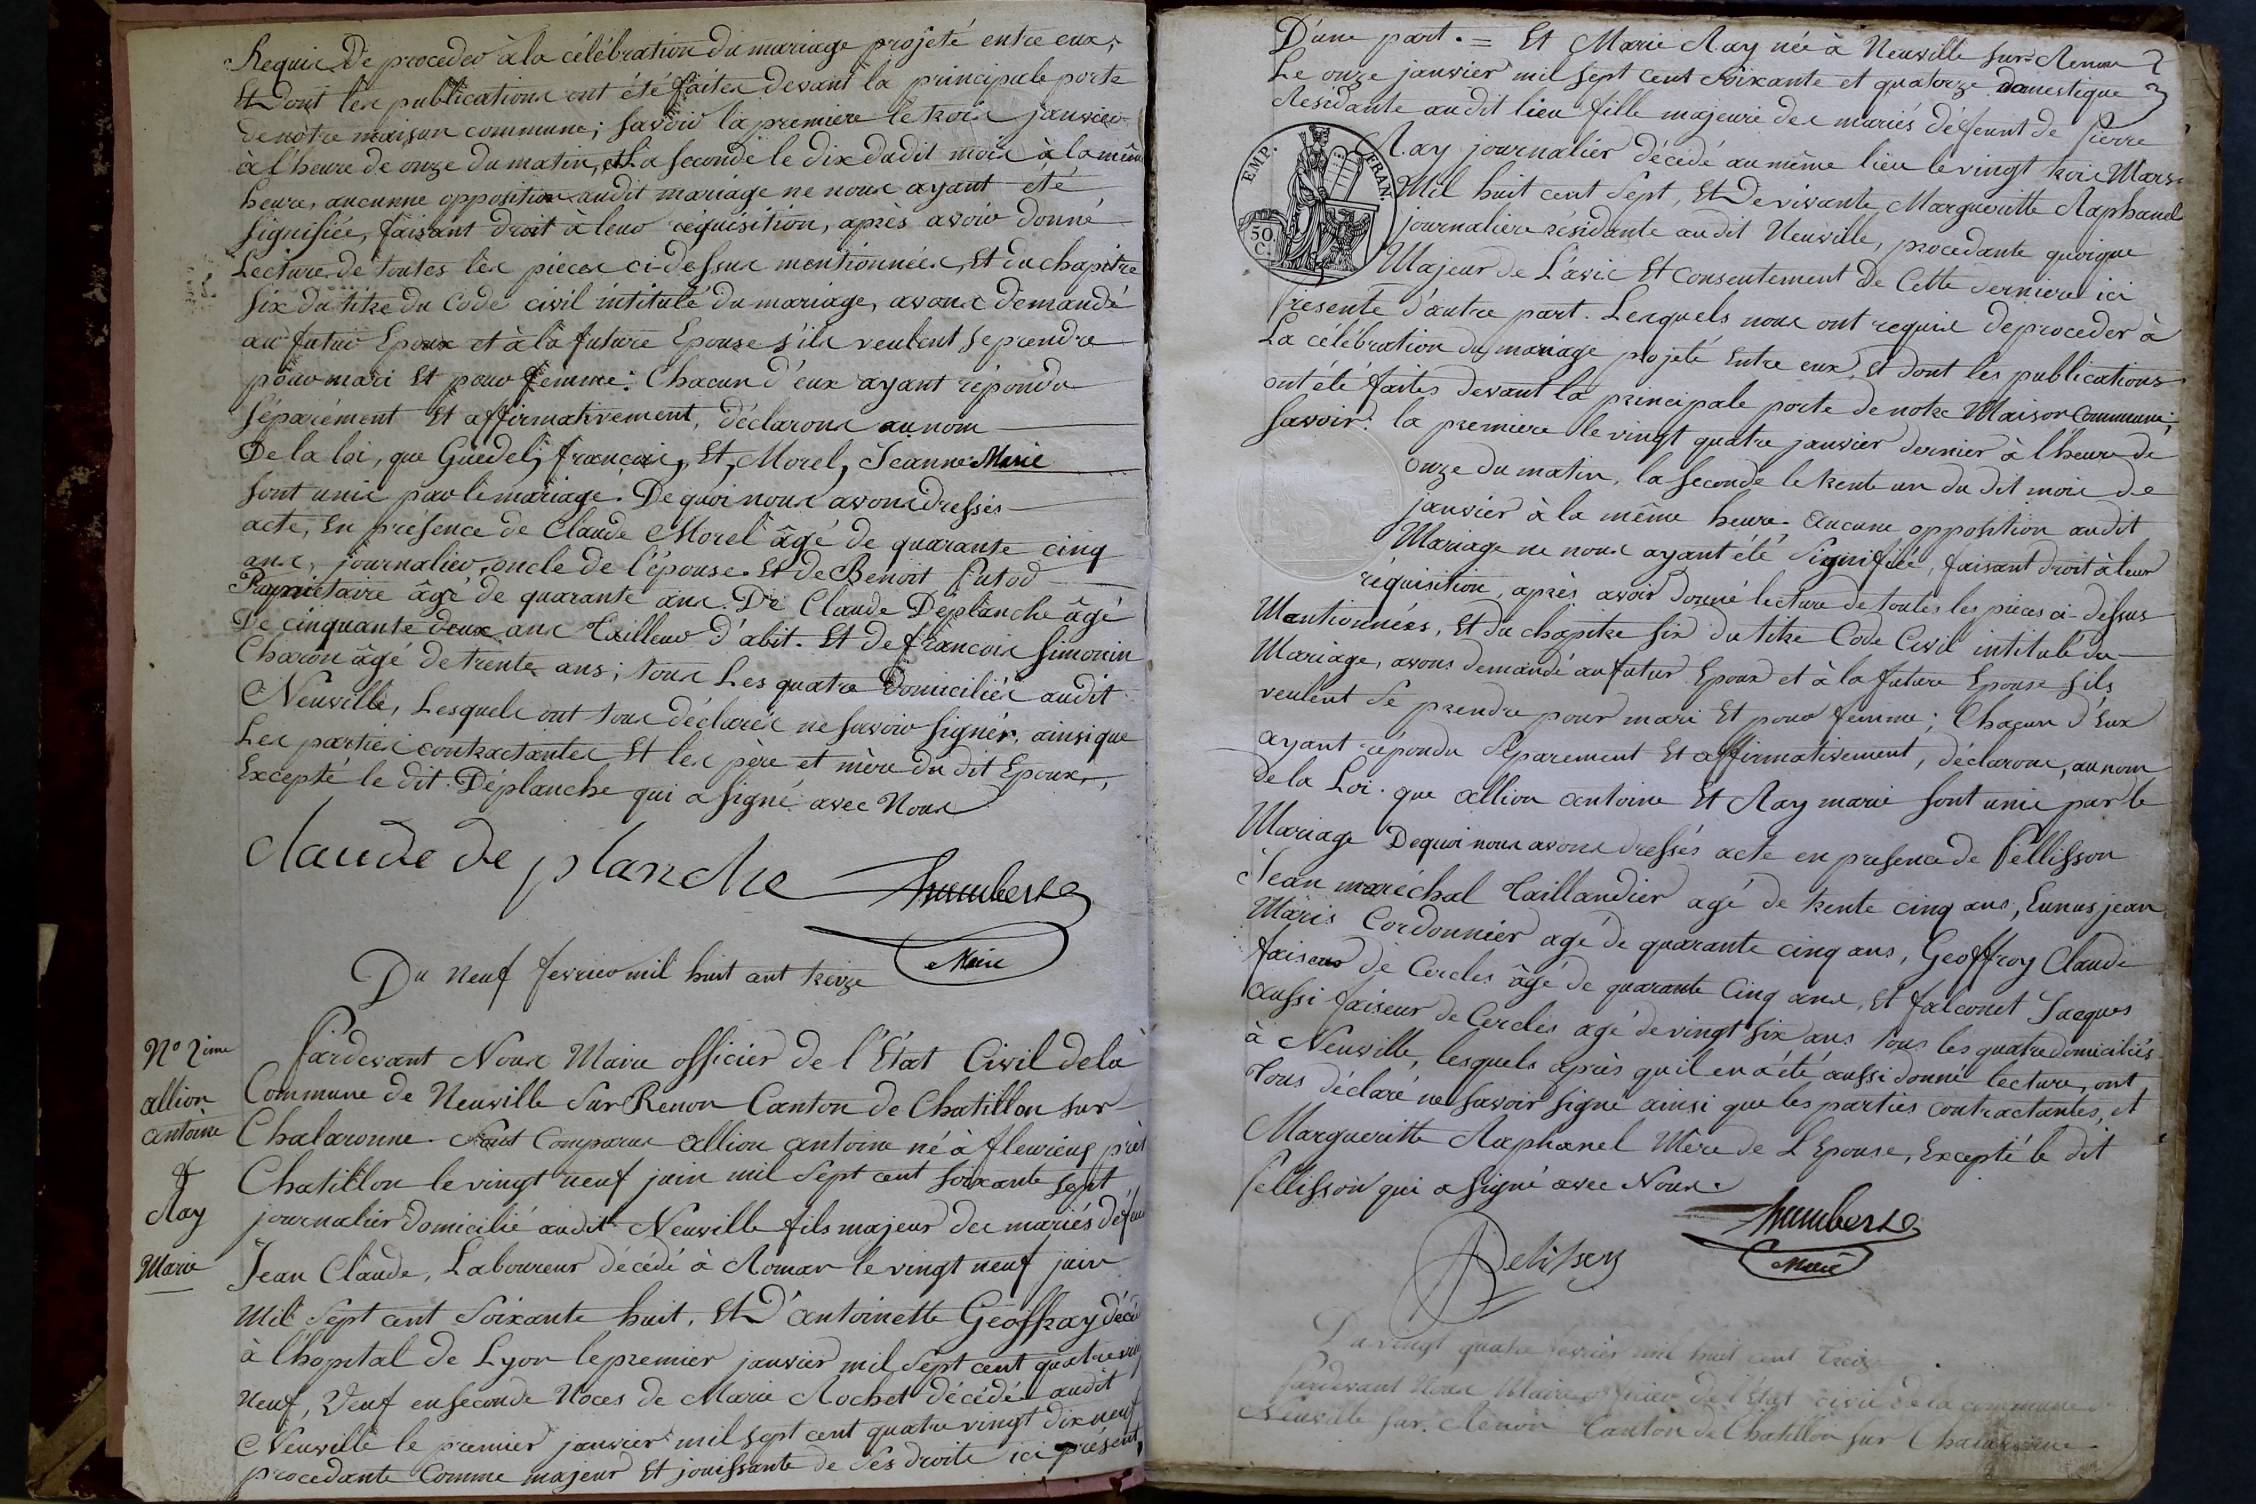 Requis De proceder à la célébration du mariage projeté entre eux,
Et Dont les publications ont été faites devant la principale porte
de notre maison commune; Savoir la premiere le trois janvier
à l'heure de onze du matin, et La seconde le dix dudit mois à la même
heure, aucunne opposition audit mariage ne nous ayant été
Signifiée, faisant droit à leur réquisition, après avoir donné
Lecture de toutes les pieces ci-dessus mentionnées, Et du chapitre
Six du titre du Code civil intitulé du mariage, avons demandé
au futur Epoux et à la future Epouse s'ils veulent se prendre
pour mari Et pour femme: Chacun d'eux ayant répondu
Séparément Et affirmativement, déclarons au nom
De la loi, que Guedel, françois, Et, Morel, Jeanne Marie
Sont unis par le mariage. De quoi nous avons dressés
acte, En présence de Claude Morel âgé de quarante cinq
ans, journalier, oncle de l'épouse. Et de Benoit Putod
Propriétaire âgé de quarante ans. De Claude Déplanche âgé
De cinquante deux ans Tailleur d'abit. Et de françois Simonin
Charon âgé de trente ans; tous Les quatre Domiciliés audit
Neuville, Lesquels ont tous déclarés ne savoir signér, ainsi que
Les parties contractantes Et les père et mère du dit Epoux,
Excepté le dit Déplanche qui a signé avec Nous
Claude de planche humbert
Maire
Du Neuf fevrier mil huit cent treize
N.º 2ime
allion
antoine
&
Ray
Marie
Pardevant Nous Maire officier de l'Etat Civil de la
Commune de Neuville Sur Renon Canton de Chatillon sur
Chalaronne. Sont Comparus allion antoine né à fleurieux près
Chatillon le vingt neuf juin mil Sept cent soixante sept
journalier domicilié audit Neuville fils majeur des mariés défun
Jean Claude, Laboureur décédé à Roman le vingt neuf juin
Mil Sept cent Soixante huit, Et D'antoinette Geoffray décé
à l'hopital de Lyon le premier janvier mil Sept cent quatre vin
Neuf, Veuf en seconde Noces de Marie Rochet décédée audit
Neuville le premier janvier mil sept cent quatre vingt dix neuf
procedante Comme majeur Et jouissante de Ses droits ici présent,
D'une part. = Et Marie Ray née à Neuville Sur-Renon
Le onze janvier mil Sept cent Soixante et quatorze domestique
Residante au dit lieu fille majeure des mariés défeunt de Pierre
Ray journalier décédé au même lieu le vingt trois Mars
Mil huit cent Sept, Et De vivante Margueritte Raphanel
journaliere résidante audit Neuville, procedante quoique
Majeur de L'avis Et consentement De Cette derniere ici
Presente d'autre part. Lesquels nous ont requis de proceder à
La célébration du mariage projeté Entre eux, Et dont les publications
ont été faites devant la principale porte de notre Maison Commune;
Savoir: la premiere le vingt quatre janvier dernier à l'heure de
onze du matin, la seconde le trente un du dit mois de
janvier à la même heure. Aucune opposition audit
Mariage ne nous ayant été Signifiée, faisant droit à leur
réquisition, après avoir donné lecture de toutes les pieces ci-dessus
Mentionnées, Et du chapitre six du titre Code Civil intitulé du
Mariage, avons demandé au futur Epoux et à la future Epouse s'ils
veulent Se prendre pour mari Et pour femme; Chacun d'Eux
ayant répondu Séparement Et affirmativement, déclarons, au nom
de la Loi. que allion antoine Et Ray marie sont unis par le
Mariage De quoi nous avons dressés acte en presence de Pellisson
Jean maréchal Taillandier agé de trente cinq ans, Lunus jean
Maris Cordonnier agé de quarante cinq ans, Geoffroy Claude
faiseur de Cercles âgé de quarante Cinq ans, Et falconet Jacques
aussi faiseur de Cercles agé de vingt six ans tous les quatre domiciliés
à Neuville, lesquels après qu'il en a été aussi donné lecture, ont
Tous déclaré ne savoir signé ainsi que les parties contractantes, et
Margueritte Raphanel Mère de L'Epouse, Excepté le dit
Pellisson qui a signé avec Nous.
humbert
Pelisson Maire
EMP. FRAN.
50 C.
Du vingt quatre fevrier mil huit cent treize
Pardevant Nous Maire officier de l'Etat civil de la commune de
Neuville sur Renon Canton de Chatillon sur Chalaronne